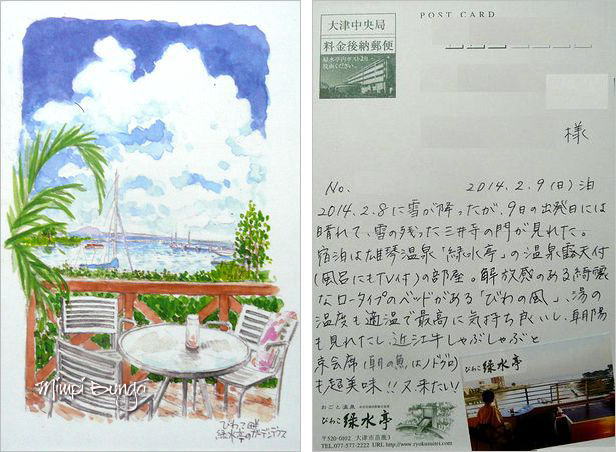 Mimpi Bunga
びわこ畔
緑水亭のガーデンテラス
POST CARD
大津中央局
料金後納郵便
緑水亭内ポストより
投函ください。
様
No.
2014.2.9(日)泊
2014.2.8に雪が降ったが、9日の出発日には
晴れて、雪の残った三井寺の門が見れた。
宿泊は雄琴温泉「緑水亭」の温泉露天付
(風呂にもTV付)の部屋。解放感のある綺麗
なロータイプのベッドがある「びわの風」、湯の
温度も適温で最高に気持ち良いし、朝陽
も見れたし、近江牛しゃぶしゃぶと
京会席(朝の魚はノドグロ)
も超美味!!又来たい!
おごと温泉
びわこ緑水亭
〒520-0102 大津市苗鹿3
TEL.077-577-2222 URL http://www.ryokusuitei.com
びわこ 緑水亭